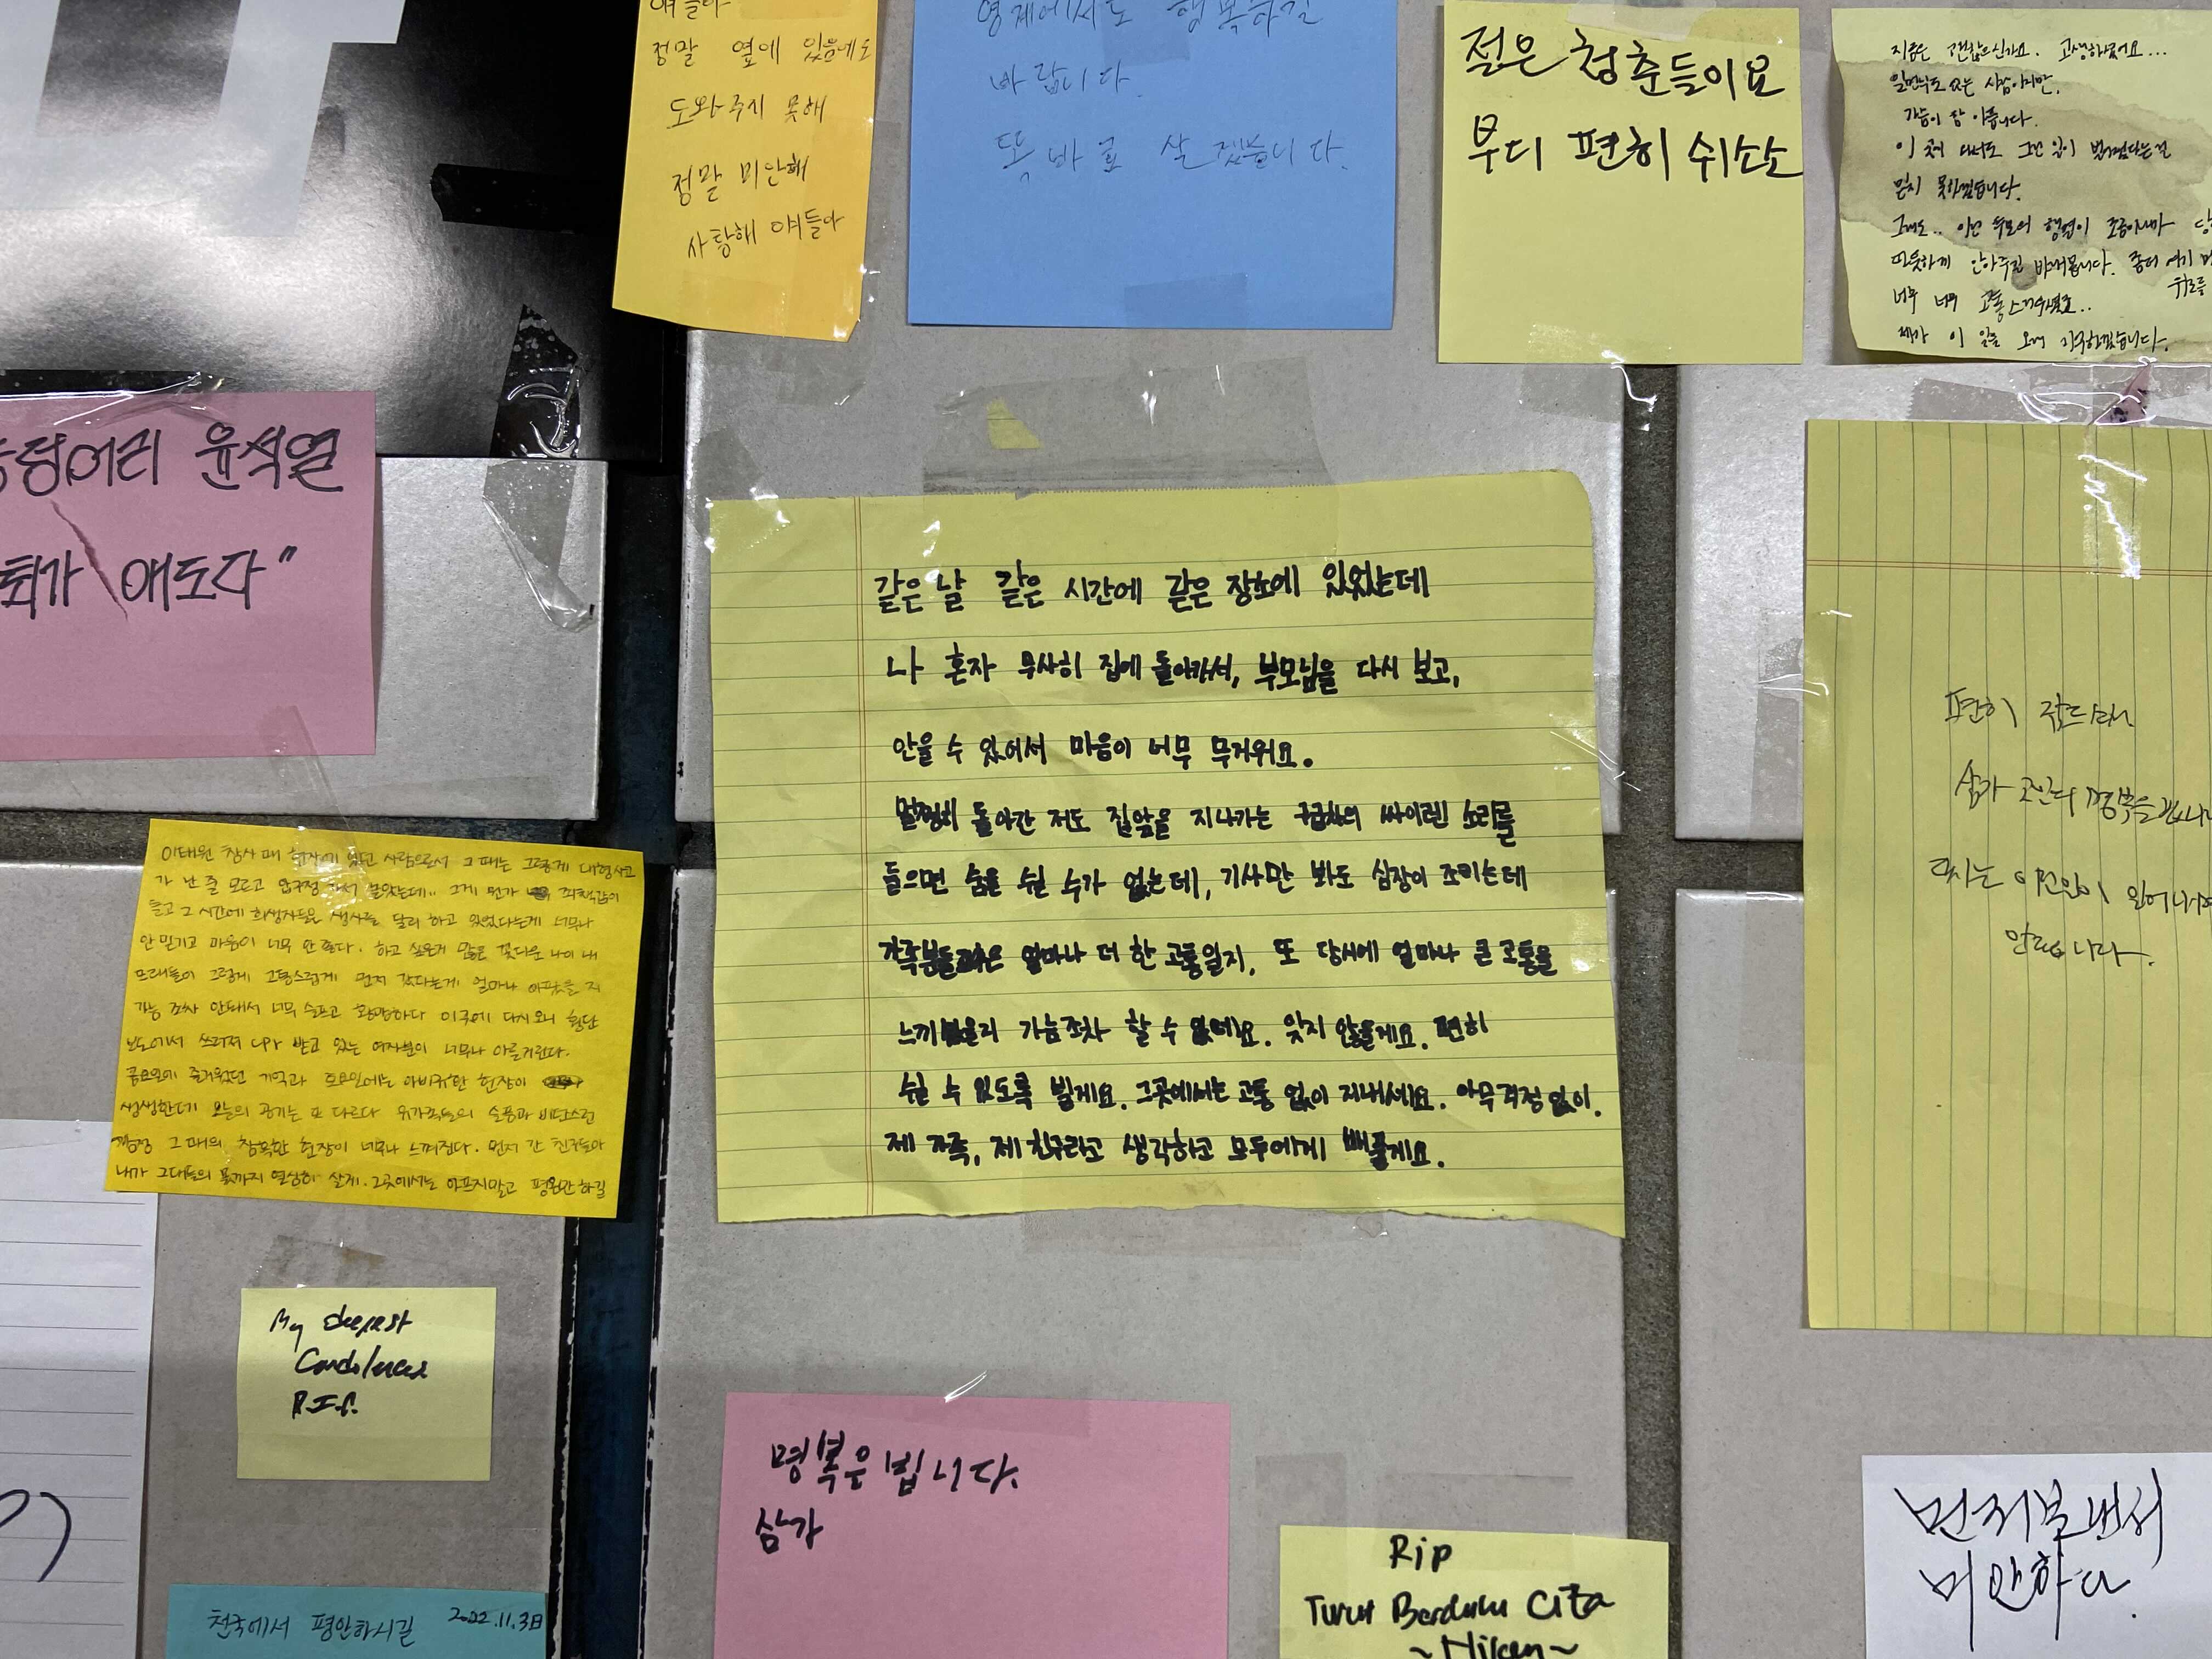 얘들아
정말 옆에 있음에도
도와주지 못해
정말 미안해
사랑해 얘들아
영계에서도 행복하길
바랍니다.
똑바로 살겠습니다.
젊은 청춘들이요
부디 편히 쉬소소
지금은 괜찮으신가요. 고생하셨어요...
일면식도 없는 사람이지만,
가슴이 참 아픕니다.
이 곳에 다시는 그런 일이 벌어졌다는걸
믿지 못하겠습니다.
그래도.. 이런 추모의 행렬이 조금이나마
따뜻하게 안아주길 바래봅니다.
위로를
너무 너무 고통스러우셨죠..
제가 이 일을 오래 기억하겠습니다.
덩어리 윤석열
퇴가 애도다"
같은 날 같은 시간에 같은 장소에 있었는데
나 혼자 무사히 집에 돌아가서, 부모님을 다시 보고,
안을 수 있어서 마음이 너무 무거워요.
멀쩡히 돌아간 저도 집앞을 지나가는 구급차의 싸이렌 소리를
들으면 숨을 쉴 수가 없는데, 기사만 봐도 심장이 조리는데
가족분들은 얼마나 더 한 고통일지, 또 당시에 얼마나 큰 고통을
느끼셨을지 가늠조차 할 수 없네요. 잊지 않을게요. 편히
쉴 수 있도록 빌게요. 그곳에서는 고통 없이 지내세요. 아무걱정 없이.
제 가족, 제 친구라고 생각하고 모두에게 베풀게요.
편히 잠드소서
삼가 고인의 명복을 빕니다
다시는 이런일이 일어나면
안됩니다.
이태원 참사 때 현장에 있던 사람으로서 그 때는 그렇게 대형사고
가 난 줄 모르고 압구정 가서 놀았는데.. 그게 뭔가 죄책감이
들고 그 시간에 희생자들은 생사를 달리 하고 있었다는게 너무나
안 믿기고 마음이 너무 안 좋다. 하고 싶은게 많은 꽃다운 나이 내
또래들이 그렇게 고통스럽게 먼저 갔다는게 얼마나 아팠을 지
가늠 조차 안돼서 너무 슬프고 황망하다 이곳에 다시오니 횡단
보도에서 쓰러져 CPR 받고 있는 여자분이 너무나 아른거린다.
금요일에 즐거웠던 기억과 토요일에는 아비규환 현장이
생생한데 오늘의 공기는 또 다르다 유가족들의 슬픔과 비탄스런
감정 그 때의 참혹한 현장이 너무나 느껴진다. 먼저 간 친구들아
내가 그대들의 몫까지 열심히 살게. 그곳에서는 아프지말고 평안만 하길
My deepest
Condolences
R.I.P.
명복을 빕니다.
삼가
천국에서 평안하시길 2022.11.3日
Rip
Turut Berduka Cita
~Niken~
먼저보내서
미안하다.